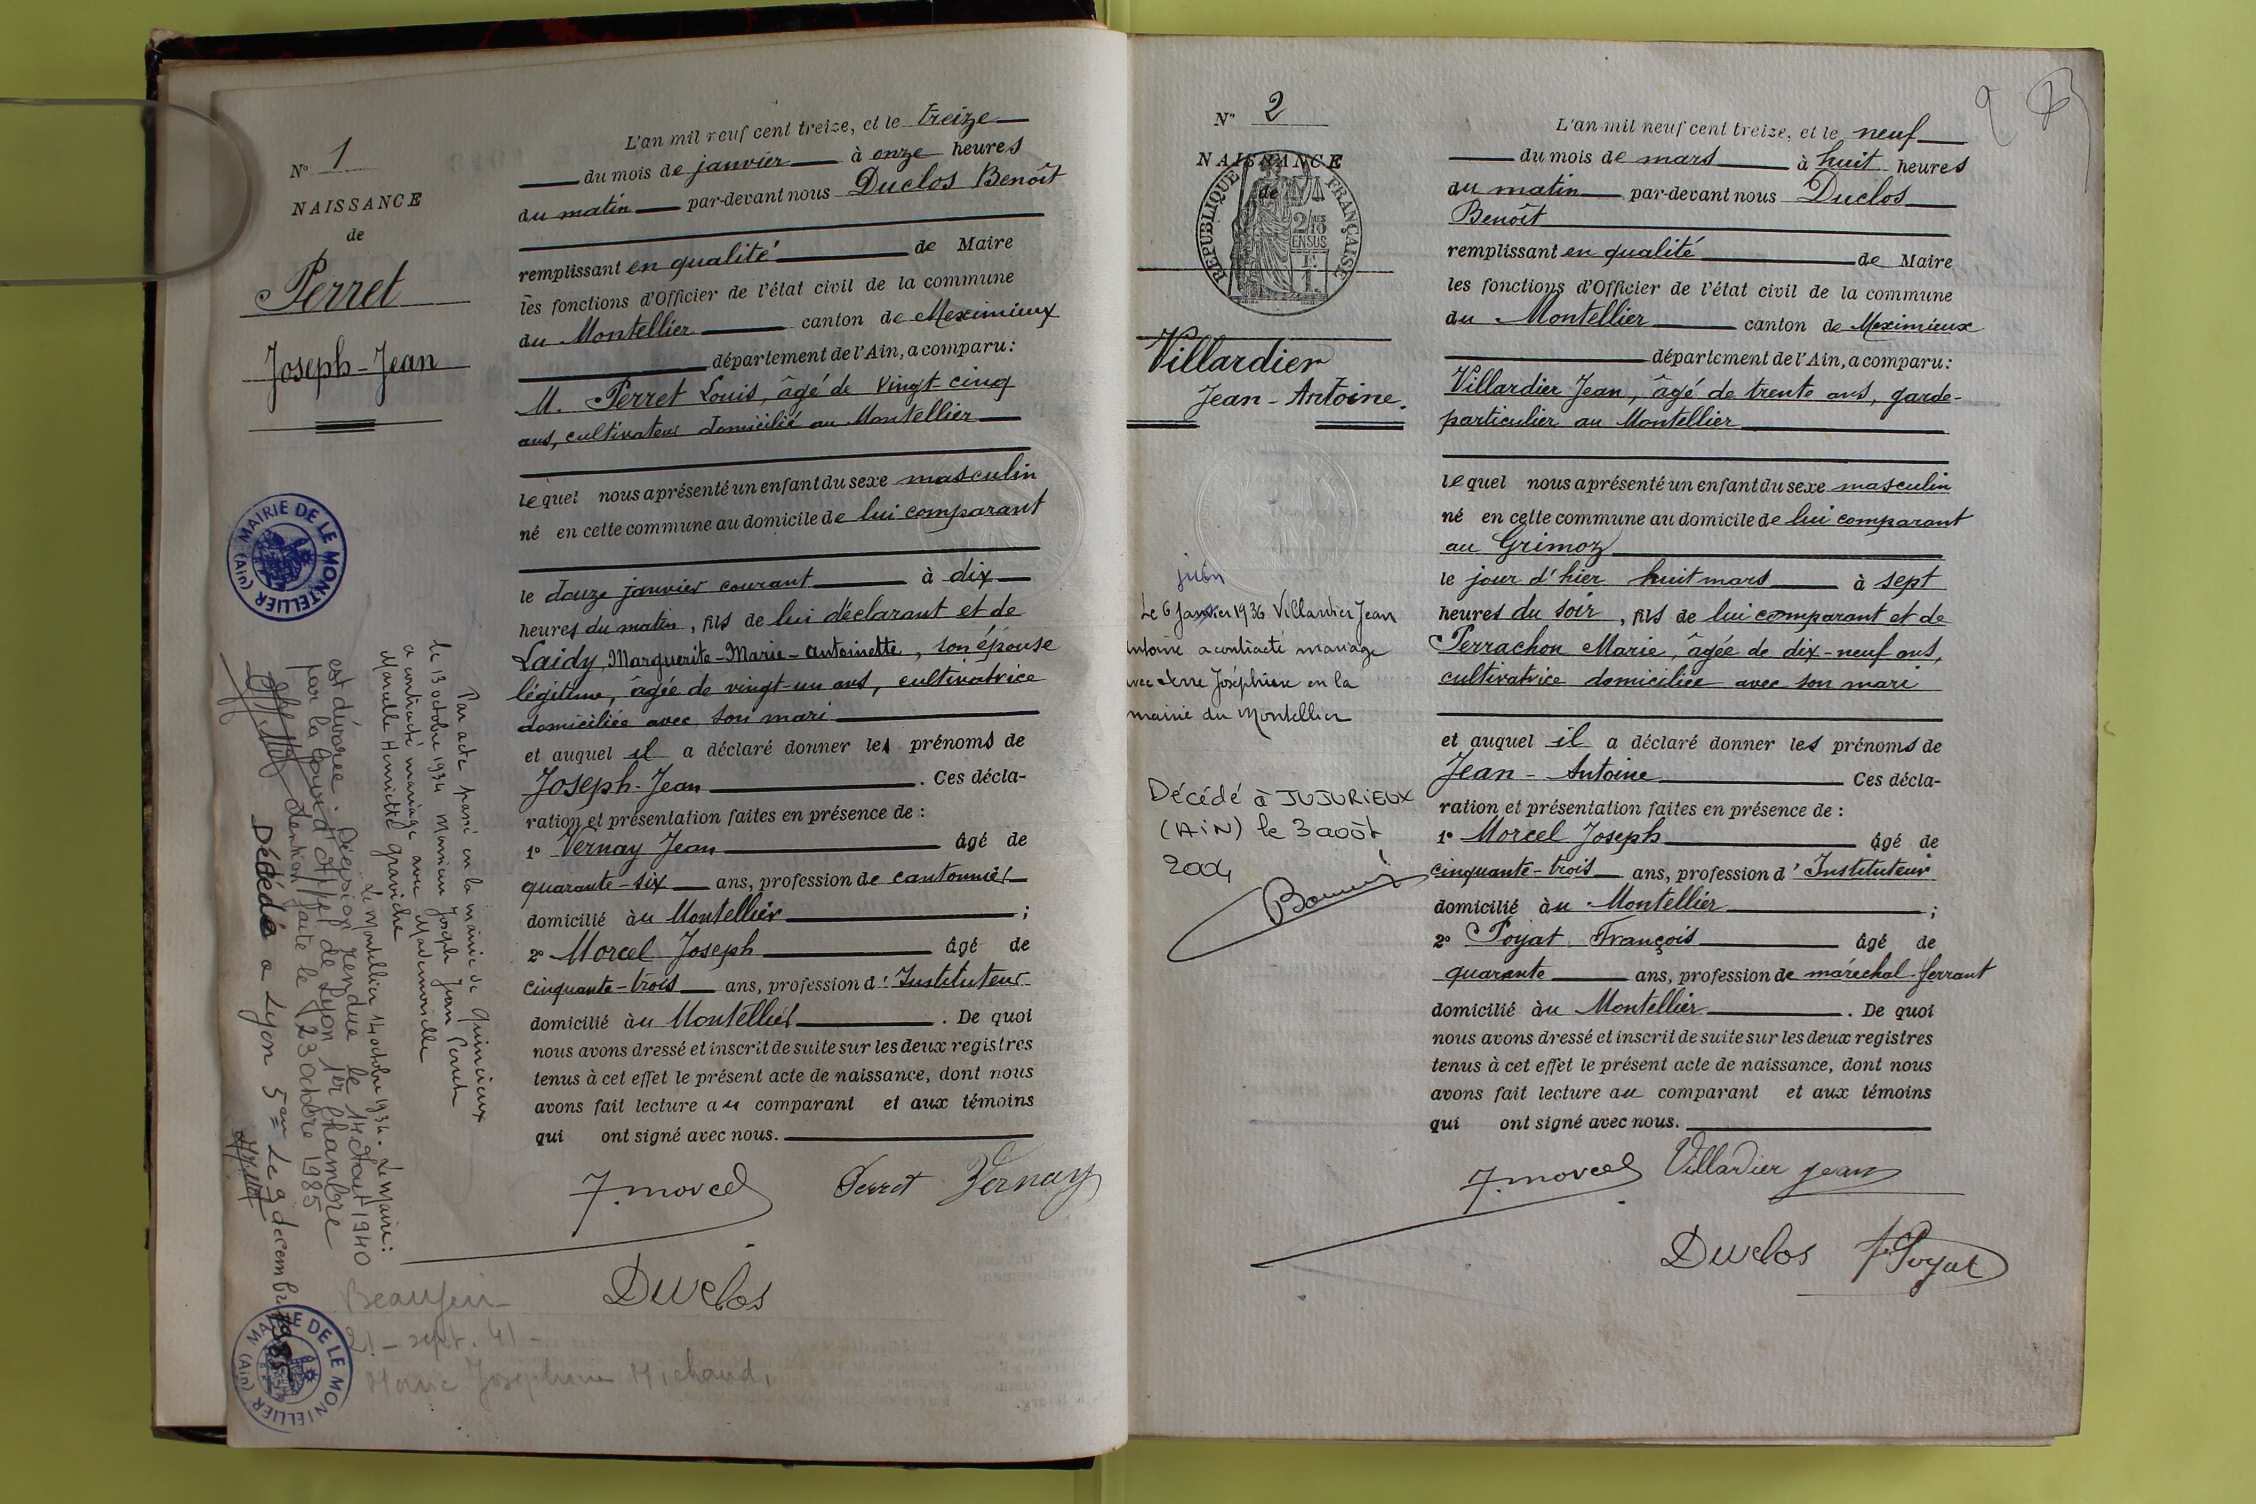 N° 1
NAISSANCE
de
Perret
Joseph-Jean
L'an mil neuf cent treize, et le treize
du mois de janvier à onze heures
du matin par-devant nous Duclos Benoît
remplissant en qualité de Maire
les fonctions d'Officier de l'état civil de la commune
du Montellier canton de Meximieux
département de l'Ain, a comparu:
M. Perret Louis, âgé de vingt cinq
ans, cultivateur domicilié au Montellier
lequel nous a présenté un enfant du sexe masculin
né en cette commune au domicile de lui comparant
le douze janvier courant à dix
heures du matin, fils de lui déclarant et de
Laidy, Marguerite-Marie-Antoinette, son épouse
légitime, âgée de vingt-un ans, cultivatrice
domiciliée avec son mari
et auquel il a déclaré donner les prénoms de
Joseph-Jean. Ces décla-
ration et présentation faites en présence de :
1° Vernay Jean âgé de
quarante-six ans, profession de cantonnier
domicilié au Montellier ;
2° Morcel Joseph âgé de
cinquante-trois ans, profession d'Instituteur
domicilié au Montellier. De quoi
nous avons dressé et inscrit de suite sur les deux registres
tenus à cet effet le présent acte de naissance, dont nous
avons fait lecture au comparant et aux témoins
qui ont signé avec nous.
J. Morcel Perret Vernay
Duclos
MAIRIE DE LE MONTELLIER
(Ain)
Par acte passé en la mairie de Quincieux
le 13 octobre 1934 Monsieur Joseph Jean Perret
a contracté mariage avec Mademoiselle
Marcelle Henriette Graviche
Le Montellier 14 octobre 1934. Le Maire:
Décision rendue le 14 Aout 1940
est divorcé
par la Cour d'Appel de Lyon 1er Chambre
Mention faite le 23 octobre 1985
Décédé a Lyon 5em Le 9 décembre 1985
MAIRIE DE LE MONTELLIER
(Ain)
Beaujeu
21 - sept. 41 -
Marie Joséphine Michaud
2
N° 2
NAISSANCE
de
RÉPUBLIQUE FRANÇAISE
Villardier
Jean-Antoine.
L'an mil neuf cent treize, et le neuf
du mois de mars à huit heures
du matin par-devant nous Duclos
Benoît
remplissant en qualité de Maire
les fonctions d'Officier de l'état civil de la commune
du Montellier canton de Meximieux
département de l'Ain, a comparu:
Villardier Jean, âgé de trente ans, garde-
particulier au Montellier
lequel nous a présenté un enfant du sexe masculin
né en cette commune au domicile de lui comparant
au Grimoz
le jour d'hier huit mars à sept
heures du soir, fils de lui comparant et de
Perrachon Marie, âgée de dix-neuf ans,
cultivatrice domiciliée avec son mari
et auquel il a déclaré donner les prénoms de
Jean-Antoine Ces décla-
ration et présentation faites en présence de :
1° Morcel Joseph âgé de
cinquante-trois ans, profession d'Instituteur
domicilié au Montellier ;
2° Poyat François âgé de
quarante ans, profession de maréchal-ferrant
domicilié au Montellier. De quoi
nous avons dressé et inscrit de suite sur les deux registres
tenus à cet effet le présent acte de naissance, dont nous
avons fait lecture au comparant et aux témoins
qui ont signé avec nous.
J. Morcel Villardier Jean
Duclos fs Poyat
juin
Le 6 janvier 1936 Villardier Jean
Antoine a contracté mariage
avec Joséphine en la
mairie du Montellier
Décédé à JUJURIEUX
(AIN) le 3 août
2004